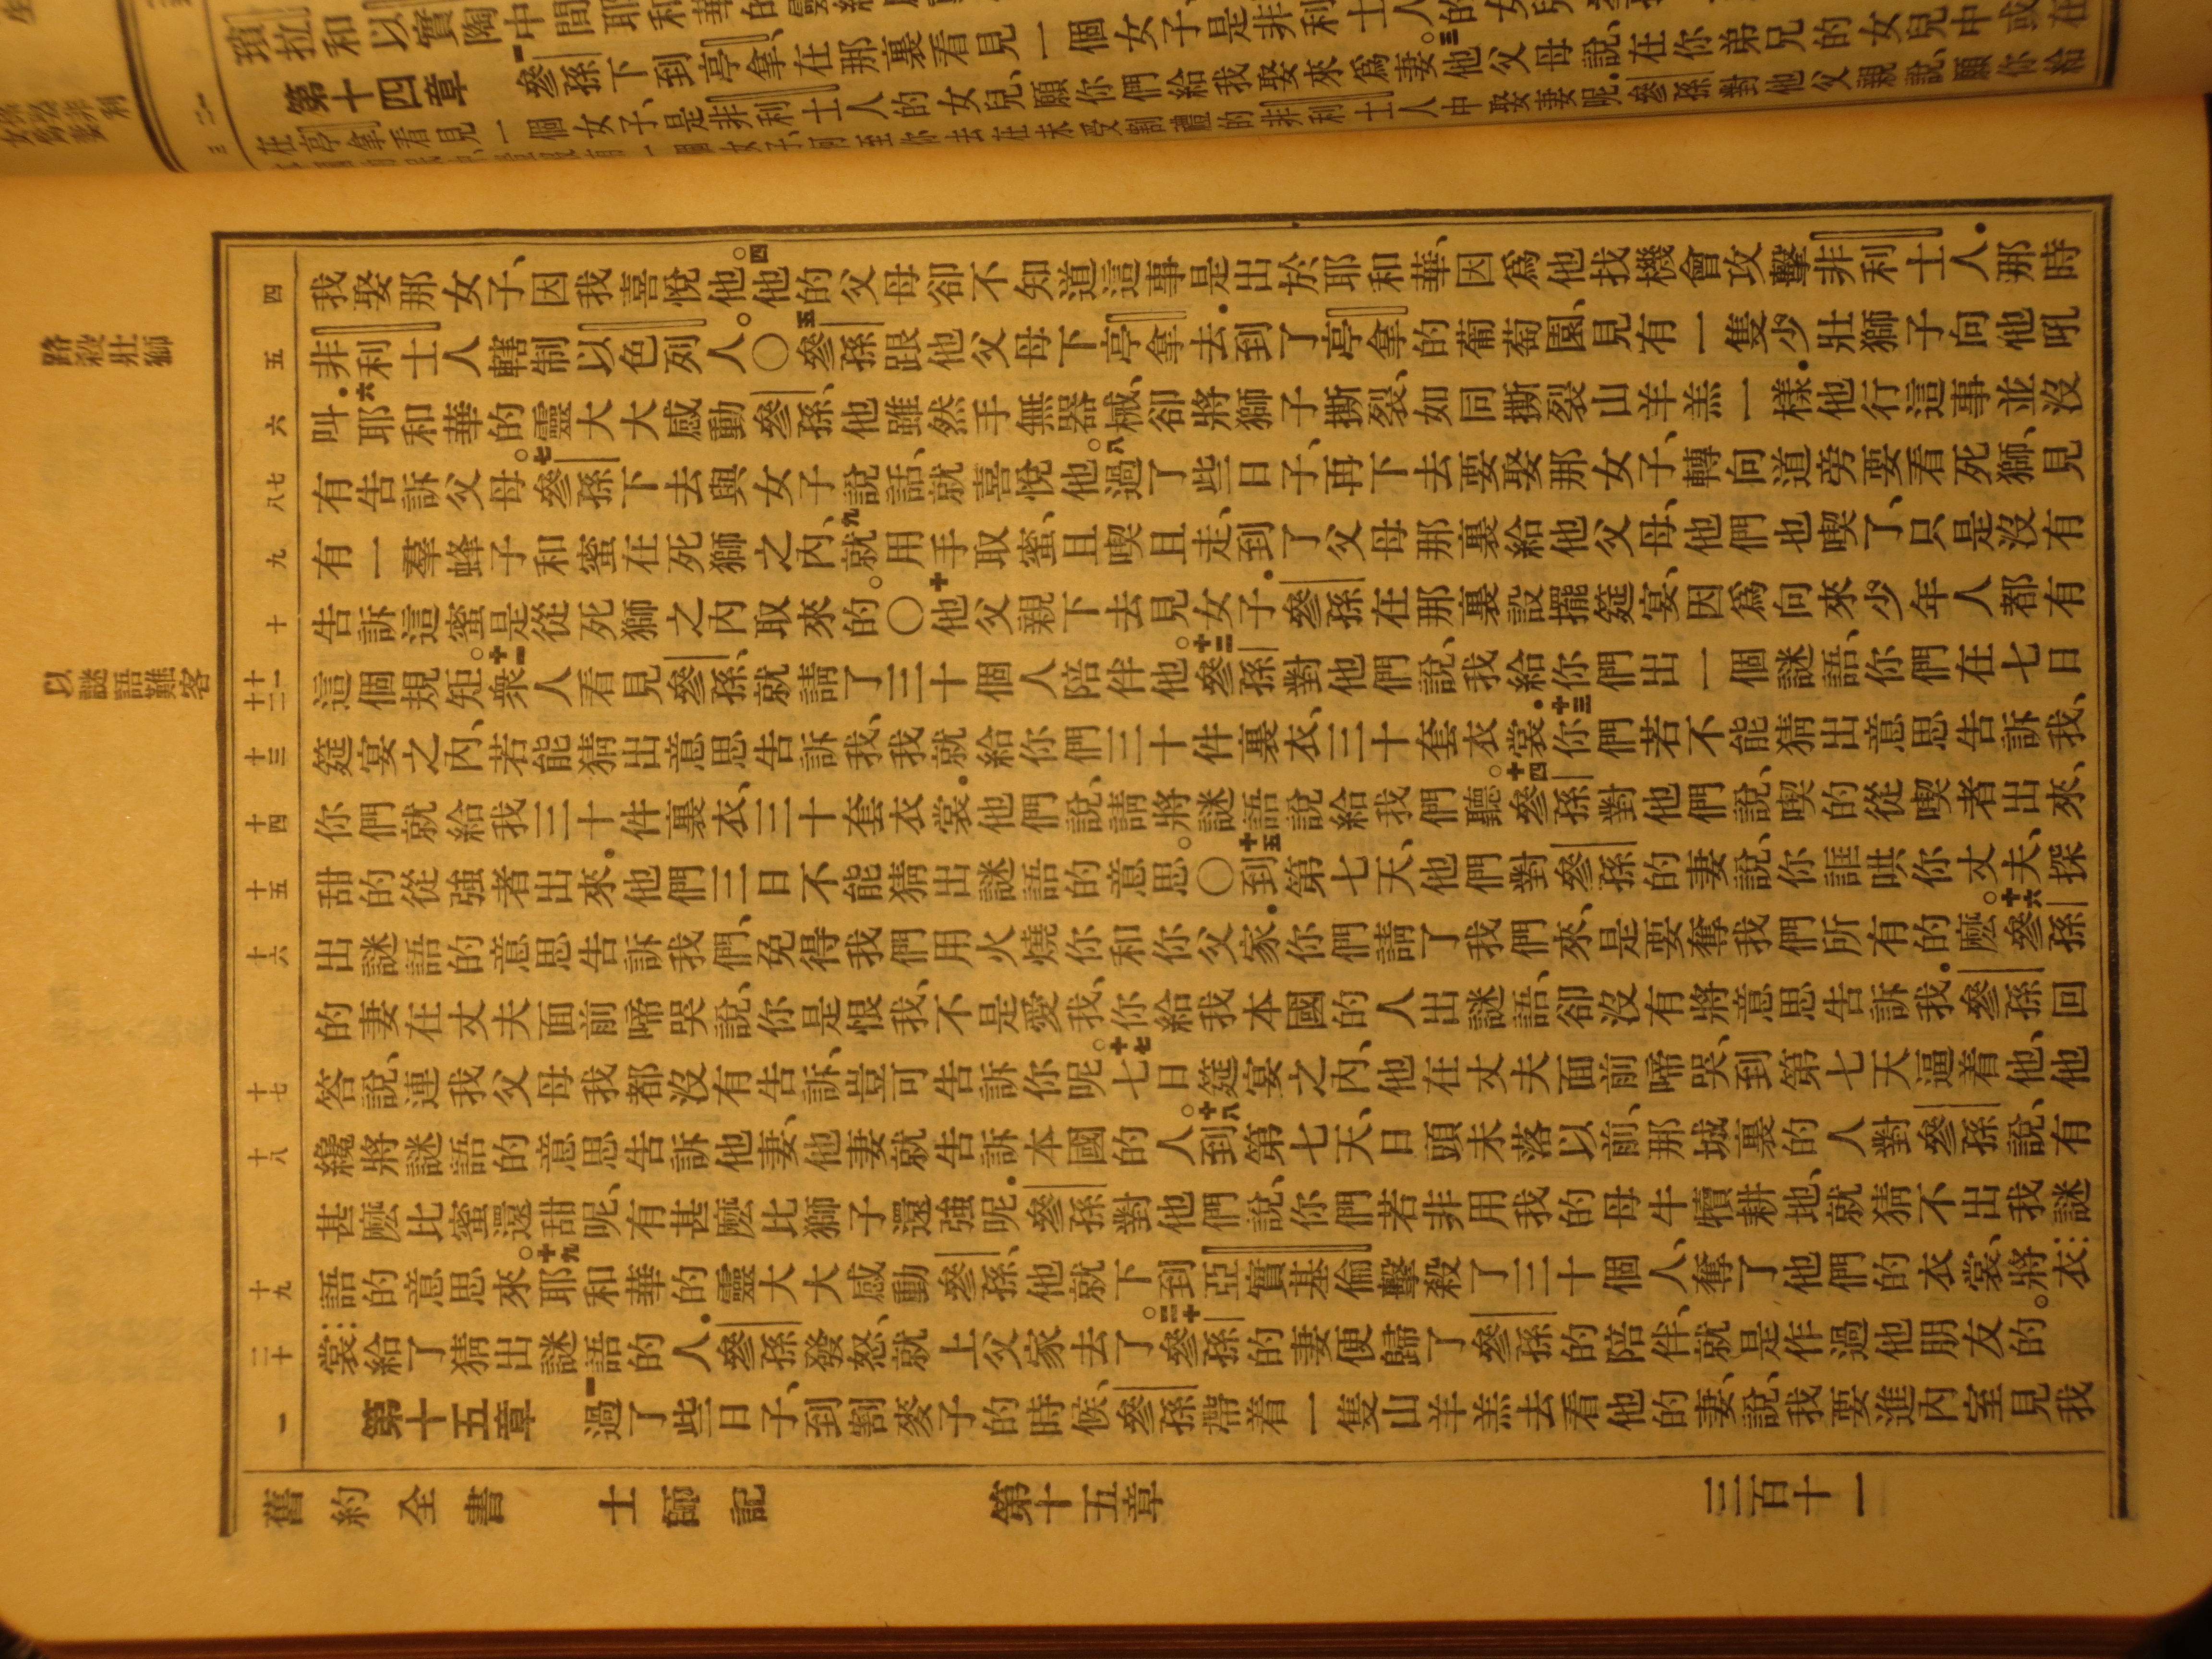 第十四章
參孫下到亭拿、在那裏看見一個女子、是非利士人的女兒
在亭拿看見一個女子、是非利士人的女兒、願你們給我娶來爲妻。三他父母說、在你弟兄的女兒中或在
四
我娶那女子、因我喜悅他。四他的父母卻不知道這事是出於耶和華、因爲他找機會攻擊非利士人．那時
五
非利士人轄制以色列人。〇五參孫跟他父母下亭拿去．到了亭拿的葡萄園、見有一隻少壯獅子向他吼
六
叫．六耶和華的靈大大感動參孫、他雖然手無器械、卻將獅子撕裂、如同撕裂山羊羔一樣．他行這事並沒
七八
有告訴父母。七參孫下去與女子說話、就喜悅他。八過了些日子、再下去要娶那女子、轉向道旁要看死獅、見
九
有一羣蜂子和蜜在死獅之內、九就用手取蜜、且喫且走、到了父母那裏給他父母、他們也喫了、只是沒有
十
告訴這蜜是從死獅之內取來的。〇十他父親下去見女子．參孫在那裏設擺筵宴、因爲向來少年人都有
十一十二
這個規矩。十一衆人看見參孫、就請了三十個人陪伴他。十二參孫對他們說、我給你們出一個謎語、你們在七日
十三
筵宴之內、若能猜出意思告訴我、我就給你們三十件裏衣、三十套衣裳．十三你們若不能猜出意思告訴我、
十四
你們就給我三十件裏衣、三十套衣裳．他們說、請將謎語說給我們聽。十四參孫對他們說、喫的從喫者出來、
十五
甜的從強者出來．他們三日不能猜出謎語的意思。〇十五到第七天、他們對參孫的妻說、你誆哄你丈夫、探
十六
出謎語的意思告訴我們、免得我們用火燒你和你父家．你們請了我們來、是要奪我們所有的麽。十六參孫
的妻在丈夫面前啼哭說、你是恨我、不是愛我、你給我本國的人出謎語、卻沒有將意思告訴我．參孫回
十七
答說、連我父母我都沒有告訴、豈可告訴你呢。十七七日筵宴之內、他在丈夫面前啼哭、到第七天逼着他、他
十八
纔將謎語的意思告訴他妻、他妻就告訴本國的人。十八到第七天、日頭未落以前、那城裏的人對參孫說、有
甚麽比蜜還甜呢、有甚麽比獅子還強呢．參孫對他們說、你們若非用我的母牛犢耕地、就猜不出我謎
十九
語的意思來。十九耶和華的靈大大感動參孫、他就下到亞實基倫擊殺了三十個人、奪了他們的衣裳、將衣
二十
裳給了猜出謎語的人．參孫發怒、就上父家去了。二十參孫的妻便歸了參孫的陪伴、就是作過他朋友的。
一
第十五章 一過了些日子、到割麥子的時候、參孫帶着一隻山羊羔去看他的妻、說、我要進內室見我
路殺壯獅
以謎語難客
舊約全書 士師記 第十五章 三百十一